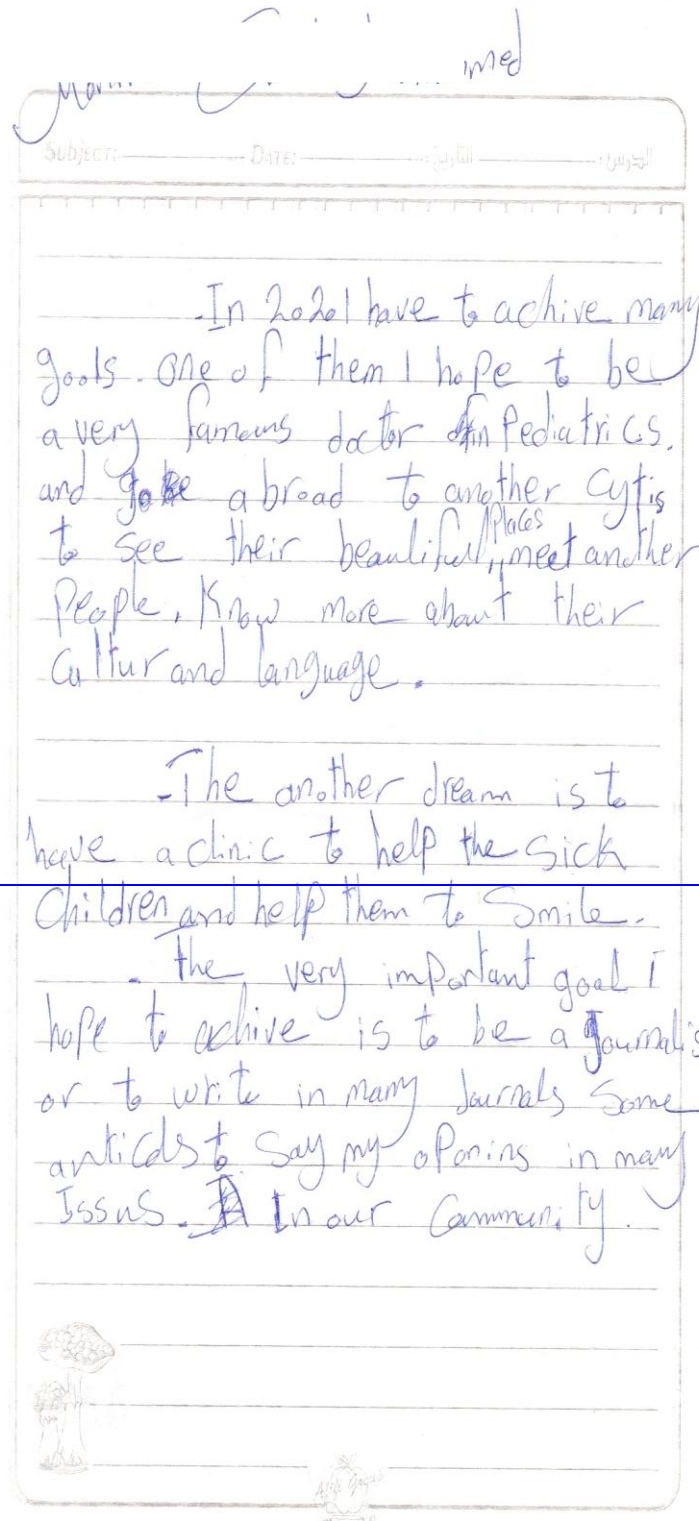 SUBJECT: DATE: التاريخ: الدرس:
-In 2020 I have to achive many
gools. one of them I hope to be
a very famous doctor in Pediatrics.
and go abroad to another cytis
to see their beautiful places, meet another
People, Know more about their
Cultur and language.
-The another dream is to
have a clinic to help the sick
children and help them to smile.
- The very important goal I
hope to achive is to be a Journalis
or to write in many Journals some
to say my oponins in many
Issus. In our Community.